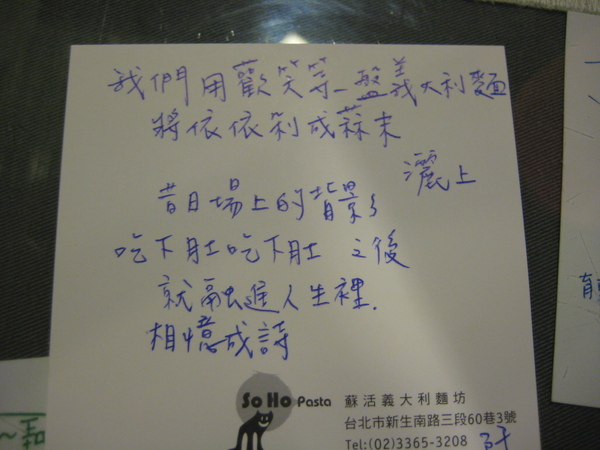 我們用歡笑等一盤義大利麵
將依依剁成蒜末
灑上
昔日場上的背影
吃下肚吃下肚 之後
就融進人生裡.
相憶成詩
SoHo Pasta
蘇活義大利麵坊
台北市新生南路三段60巷3號
Tel:(02)3365-3208